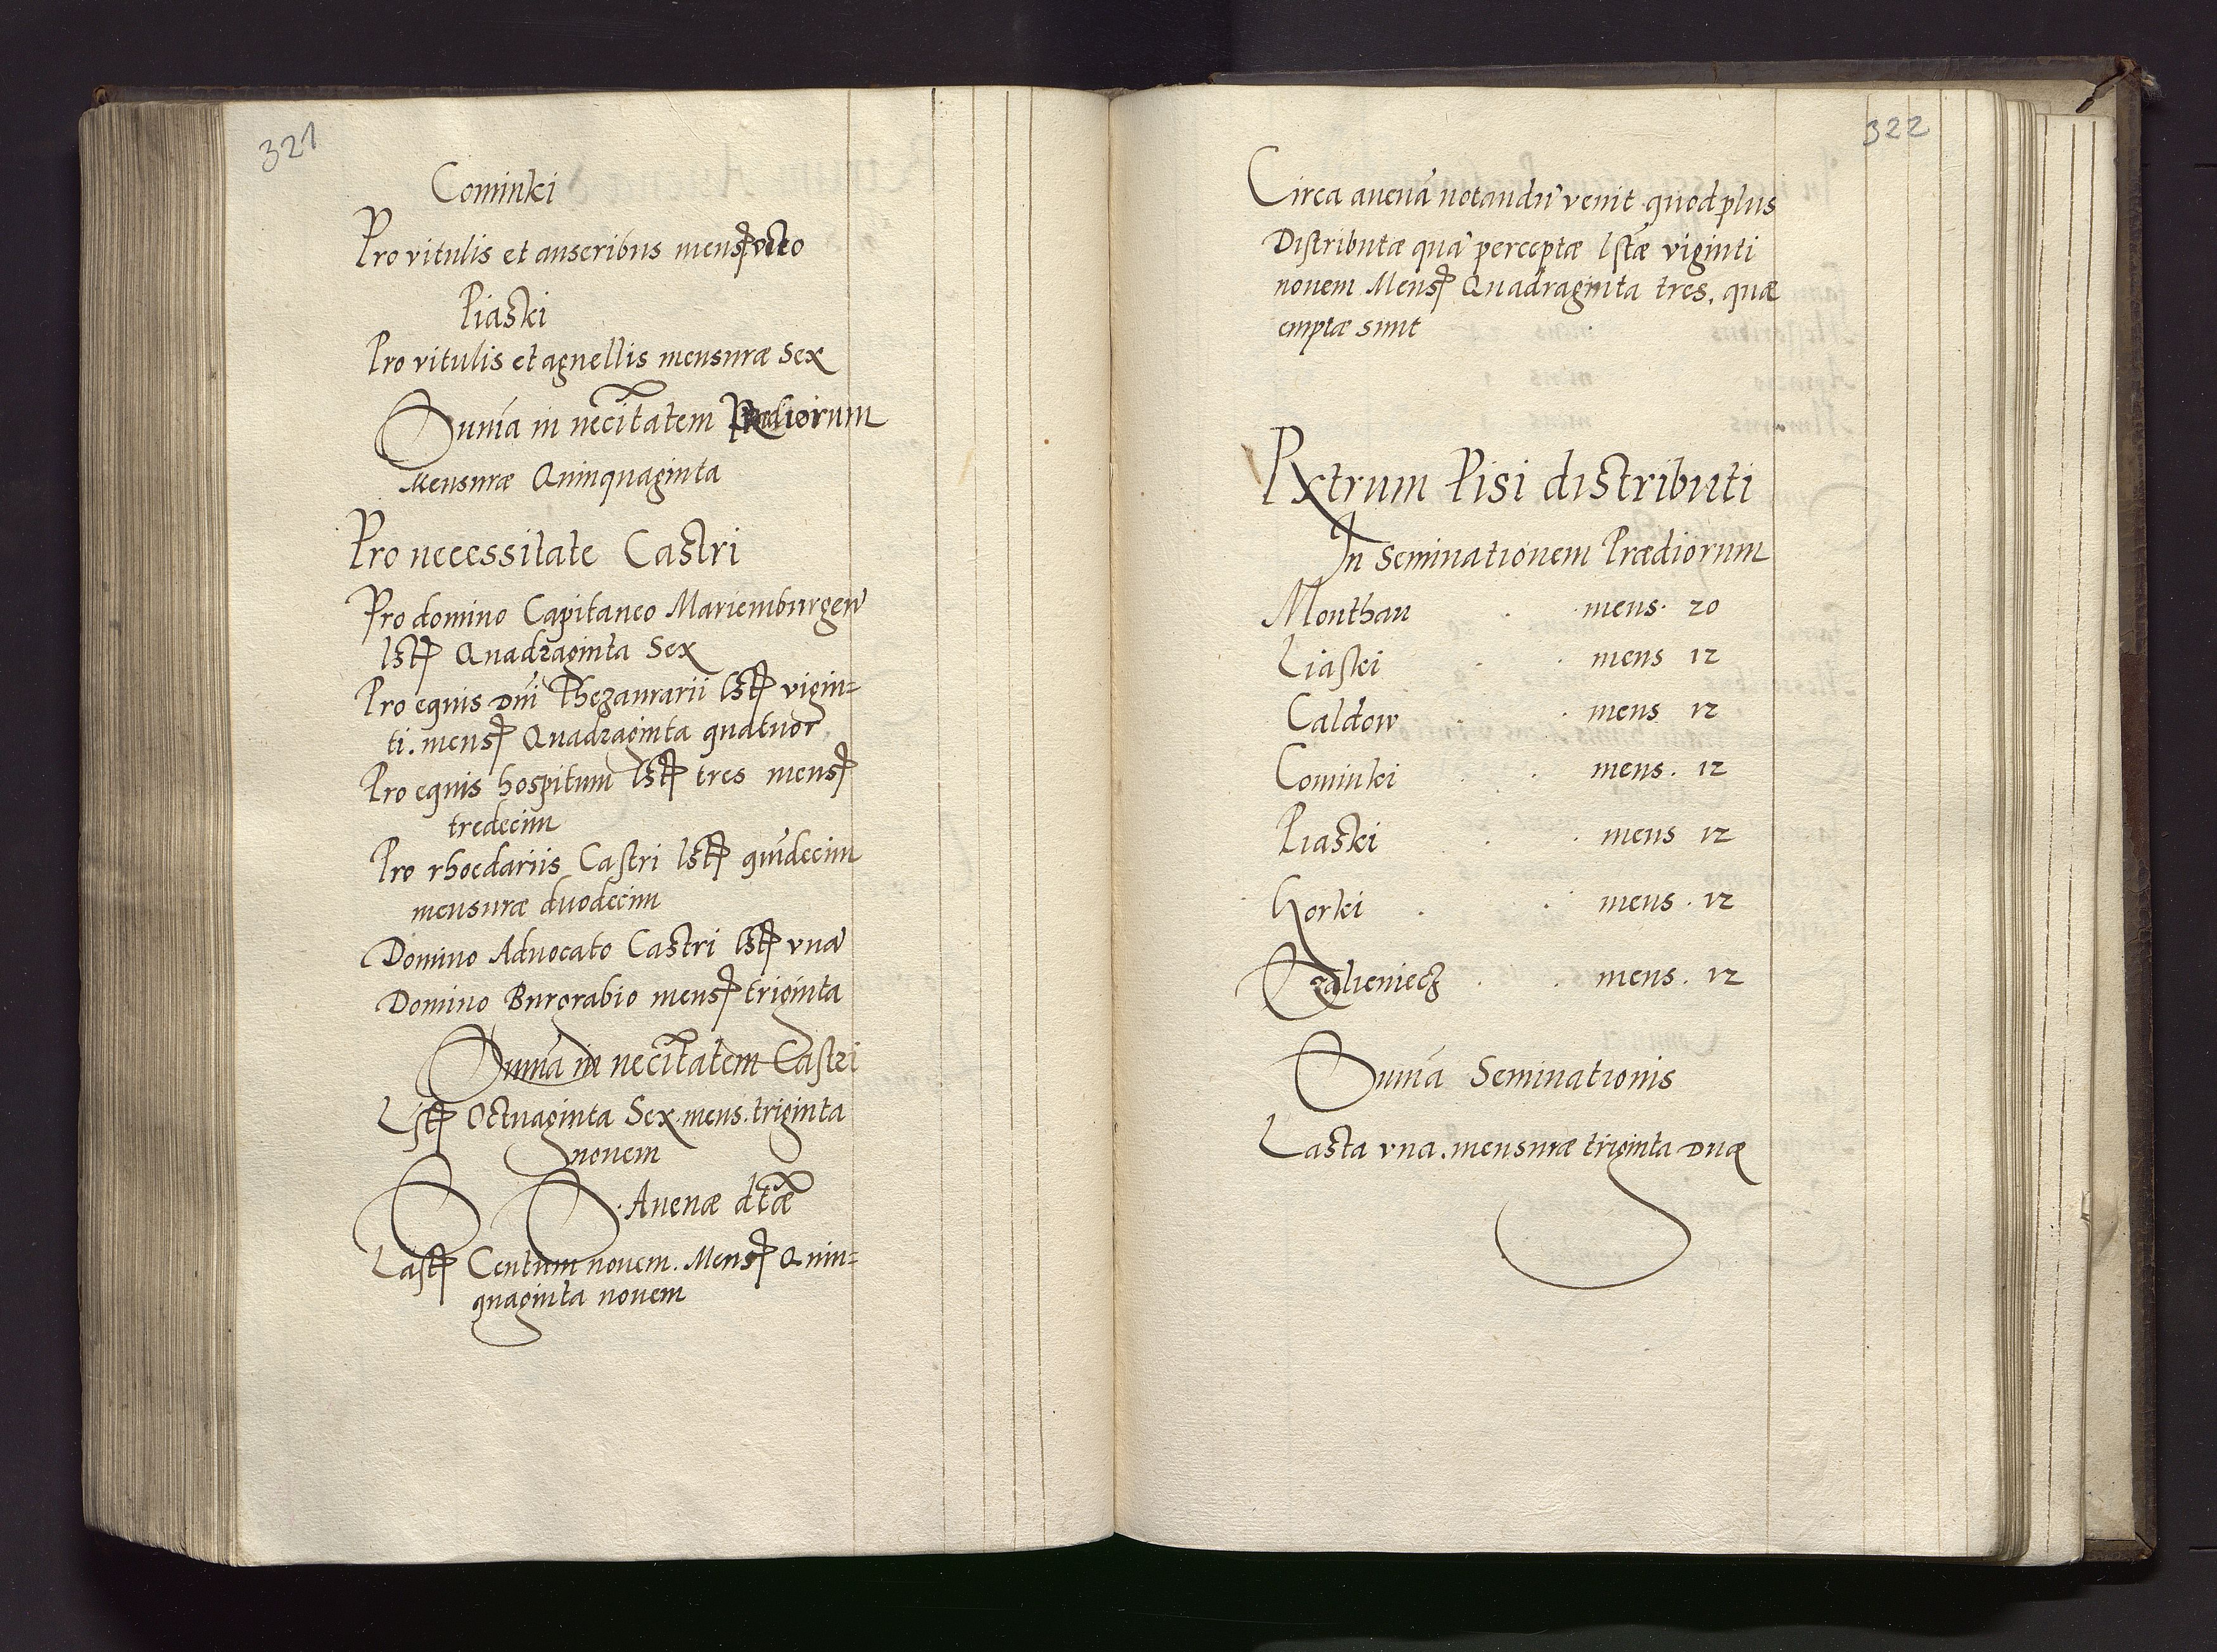 321
Cominki
Pro vitulis et anseribus mensꝭ octo
Piaski
Pro vitulis et agnellis mensuræ Sex
Suma in necitatem Prædiorum
Mensuræ Quinquaginta
Pro necessitate Castri
Pro domino Capitaneo Mariemburgen
lstꝭ Quadraginta Sex
Pro equis Dni Thezaurarii lstꝭ vigin=
ti. mensꝭ Quadraginta quatuor
Pro equis hospitum lstꝭ tres mensꝭ
tredecim
Pro rhoedariis Castri lstꝭ quīdecim
mensuræ duodecim
Domino Advocato Castri lstꝭ vna
Domino Burgrabio mensꝭ triginta
Suma in necitatem Castri
Lstꝭ Octuaginta Sex. mens. triginta
nouem
S S. Auenæ dtæ
Lastꝭ Centum nouem. Mensꝭ Quin=
quaginta nouem
322
Circa auenā notandū venit quod plus
Distributæ quā perceptæ lstæ viginti
nonem Mensꝭ Quadraginta tres. quæ
emptæ sunt
Rxtrum Pisi distributi
In Seminationem Prædiorum
Monthau mens. 20
Liaski mens 12
Caldow mens 12
Cominki mens. 12
Piaski mens 12
Horki mens. 12
Czalieniecz mens. 12
Suma Seminationis
Lasta vna. mensuræ triginta Duæ